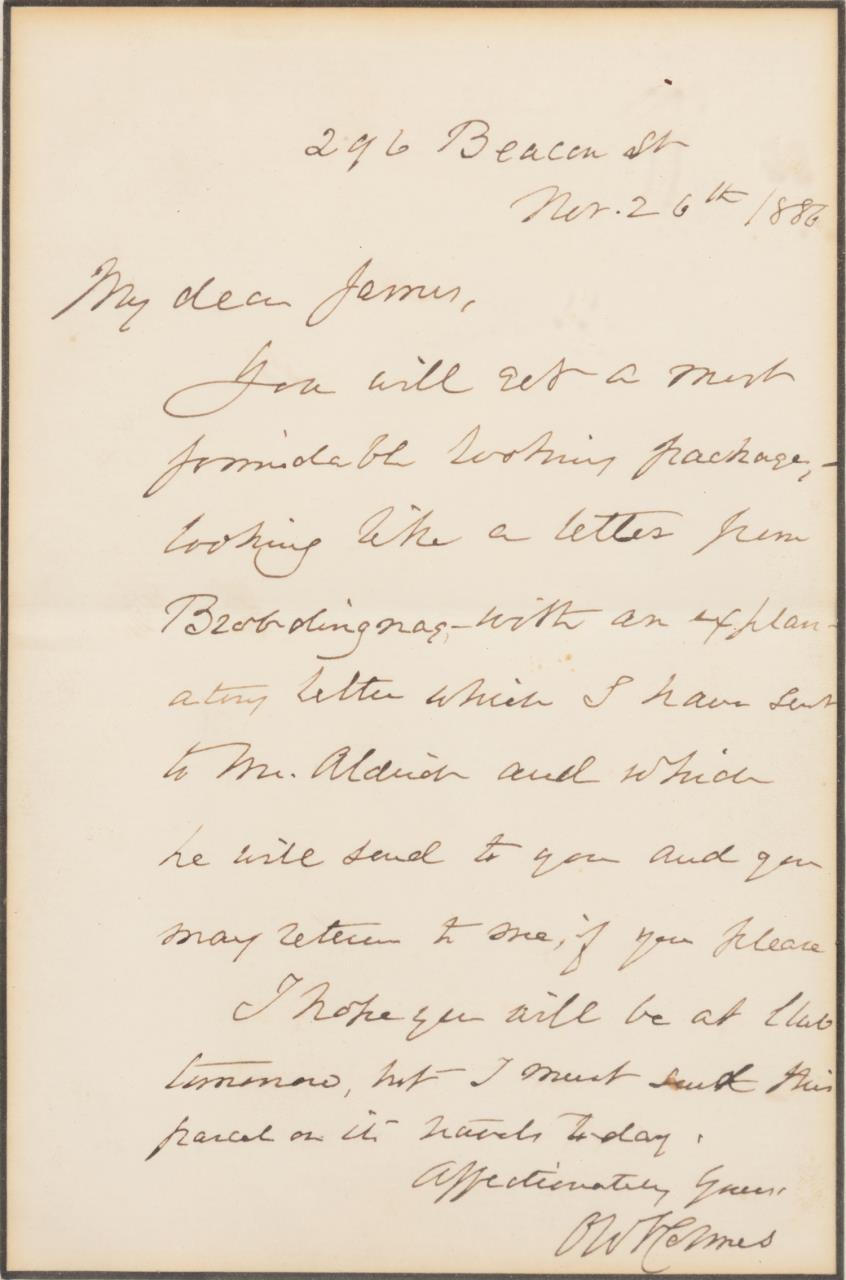 296 Beacon St
Nov. 26th 1886
My dear James,
You will get a most
formidable looking package,-
looking like a letter from
Brobdingnag,-with an explan-
atory letter which I have sent
to Mr. Aldrich and which
he will send to you and you
may return to me, if you please
I hope you will be at Club
tomorrow, but I must send this
parcel on its travels to-day.
Affectionately Yours,
O W Holmes